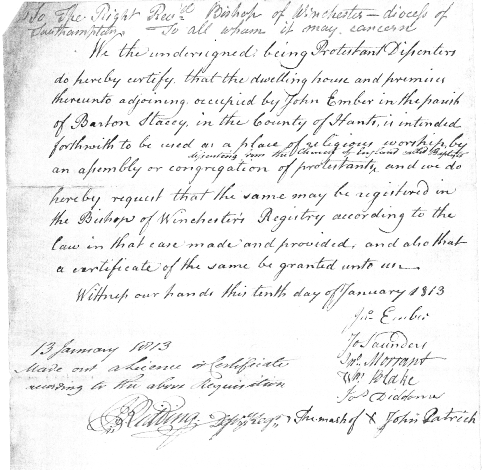 To The Right Rev'd Bishop of Winchester – diocess of
Southampton To all whom it may concern
We the undersigned being Protestant Dissenters
do hereby certify that the dwelling house and premises
thereunto adjoining occupied by John Ember in the parish
of Barton Stacey, in the County of Hants, is intended
forthwith to be used as a place of religious worship, by
dissenting from the Church of England called Baptists
an assembly or congregation of protestants, and we do
hereby request that the same may be registered in
the Bishop of Winchester's Registry according to the
law in that case made and provided, and also that
a certificate of the same be granted unto us
Wittness our hands this tenth day of January 1813
Jno Ember
Jo Saunders
Morrant
Wm Blake
Jos Diddams
13 January 1813
Made out a Licence or Certificate
according to the above Requisition
The mark of X John Patrick